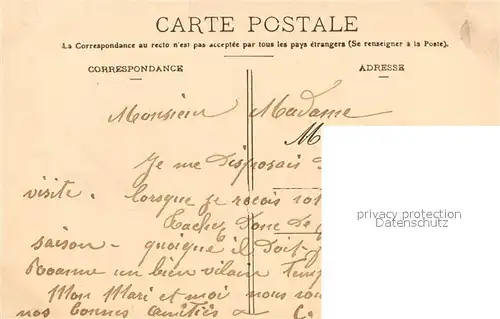 CARTE POSTALE
La Correspondance au recto n'est pas acceptée par tous les pays étrangers (Se renseigner à la Poste).
CORRESPONDANCE ADRESSE
Monsieur Madame
M
Je me disposais
visite. lorsque je reçois
Tachez donc de
saison - quoique il doit
Roanne un bien vilain temp
Mon Mari et moi nous
nos bonnes amitiés
privacy protection
Datenschutz